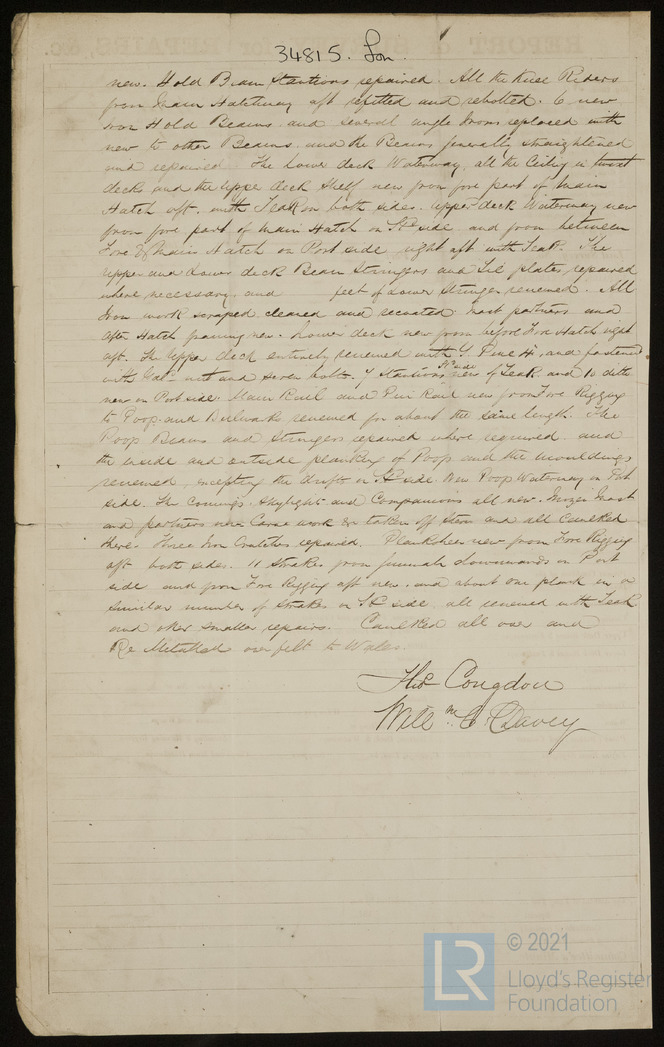 34815. Lon.
new. Hold Beam Stantions repaired. All the Knee Riders
from Main Hatchway aft refitted and rebolted. 6 new
Iron Hold Beams and several angle Irons replaced with
new to other Beams and the Beams generally straightened
and repaired. The lower deck Waterway, all the Ceiling in twixt
decks and the upper deck Shelf new from fore part of Main
Hatch aft. with Teak on both sides. Upper deck Waterway new
from fore part of Main Hatch on Std side and from between
Fore & Main Hatch on Port side right aft with Teak. The
upper and Lower deck Beam Stringers and Tie plates, repaired
where necessary, and feet of Lower Stringer renewed. All
Iron work scraped cleaned and recoated. Mast partners and
After Hatch framing new. Lower deck new from before Fore Hatch right
aft. The Upper deck entirely renewed with Y. Pine 4", and fastened
with Gal- nut and screw bolts. 7 Stantions St'd side new of Teak and 10 ditto
new on Port side. Main Rail and Pin Rail new from Fore Rigging
to Poop and Bulwark renewed for about the same length. The
Poop Beams and Stringers repaired where required and
the inside and outside planking of Poop and the mouldings
renewed, excepting the draft on Std side. New Poop Waterway on Port
side. The comings, Skylight and Companions all new. Mizen Mast
and partners new. Carve work &c taken off Stern and all Caulked
there. Three Iron Crutches repaired. Planksheer new from Fore Rigging
aft both sides. 11 Strakes from downwards on Port
side and from Fore Rigging aft new, and about one plank in a
similar number of Strakes on Std side all renewed with Teak
and other smaller repairs. Caulked all over and
Re Metalled over felt to Wales.
Thos Congdon
Willm C. Davey
© 2021
Lloyd's Register
Foundation
LR
REPORT of for REPAIRS, &c.